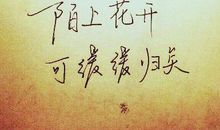 陌上花开
可缓缓归矣